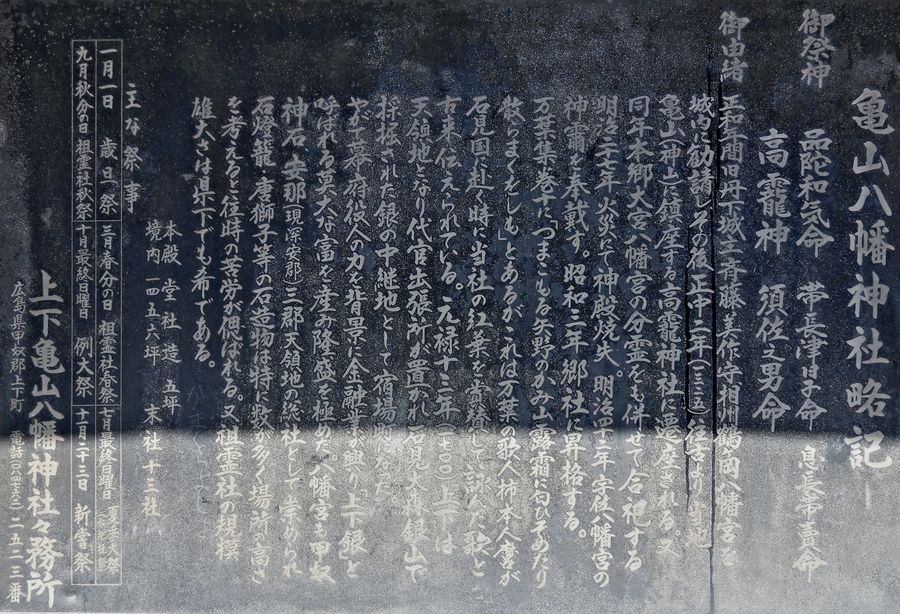 亀山八幡神社略記
御祭神 品陀和気命 帯長津日子命 息長帯売命
高靇神 須佐之男命
御由緒 正和年間旧丹下城主斉藤美作守相州鶴岡八幡宮を
城内に勧請しその後正中二年(一三二五)往古より
亀山(神山)に鎮座する高靇神社に遷座される。又
同年本郷大宮八幡宮の分霊をも併せて合祀する
明治三十年火災にて神殿焼失。明治四十二年宇佐八幡宮の
神霊を奉戴す。昭和三年郷社に昇格する。
万葉集巻十に「つまこもる矢野のかみ山露霜に匂ひそめたり
散らまくをしも」とあるがこれは万葉の歌人柿本人麿が
石見国に赴く時に当社の紅葉を賞嘆して詠んだ歌と
古来伝えられている。元禄十三年(一七〇〇)上下は
天領地となり代官出張所が置かれ石見大森銀山で
採掘された銀の中継地として宿場町となった
やがて幕府役人の力を背景に金融業が興り「上下銀」と
呼ばれる莫大な富を産み隆盛を極めた。八幡宮も甲奴
神石安那(現深安郡)三郡天領地の総社として崇められ
石燈籠・唐獅子等の石造物は特に数が多く場所の高さ
を考えると往時の苦労が偲ばれる。又祖霊社の規模
雄大さは県下でも希である。
本殿 堂社造 五坪
境内 一四五六坪 末社十三社
主な祭事
一月一日 歳旦祭 三月春分の日 祖霊社春祭 七月最終日曜日
九月秋分の日 祖霊社秋祭 十月最終日曜日 例大祭 十一月二十三日 新嘗祭
上下亀山八幡神社々務所
広島県甲奴郡上下町 (電話〇八四七六二)二五二三番